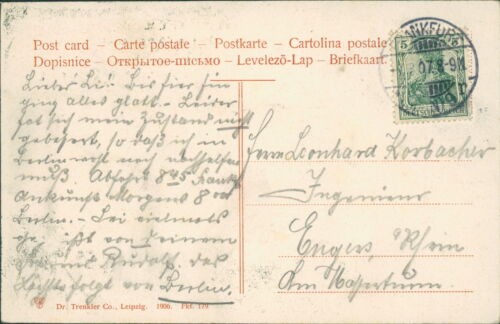 Post card – Carte postale – Postkarte – Cartolina postale
Dopisnice – Открытое-письмо – Levelező-Lap – Briefkaart.
5 5
07. 8-9N.
Lieber Bis hier
ging alles glatt. Leider
hat sich mein Zustand nicht
gebessert, so daß ich in
Berlin
muß. Abfahrt 8 45
Ankunft Morgens 8
Berlin. – Sei vielmals
von Deinem
Rudolf. Das
folgt von Berlin.
Herrn Leonhard Korbacher
Ingenieur
Engers, Rhein
Am Wasserturm.
Dr. Trenkler Co., Leipzig. 1906. Fkf. 179